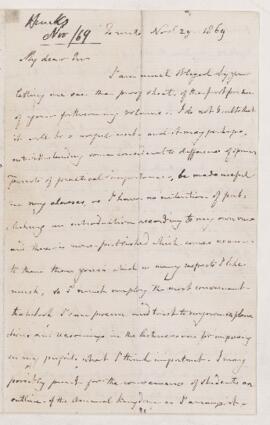 Hincks
Nov/69
Toronto Nov. 29 1869
My dear Sir
I am much obliged by your
letting me see the proof sheets of the first portion
of your forthcoming volume. I do not doubt that
it will be a useful work and it may perhaps,
notwithstanding some considerable difference of opinion
points of practical importance, be made useful
in my classes, as I have no intention of pub-
lishing an introduction according to my own views
and there is none published which comes nearer
to them than yours which in many respects I like
much, so I must employ the most convenient
text book I can procure and trust to my own explana-
tions and reasonings in the lecture room for impressing
on my pupils what I think important. I may
possibly print for the convenience of students an
outline of the Animal Kingdom as I arrange it